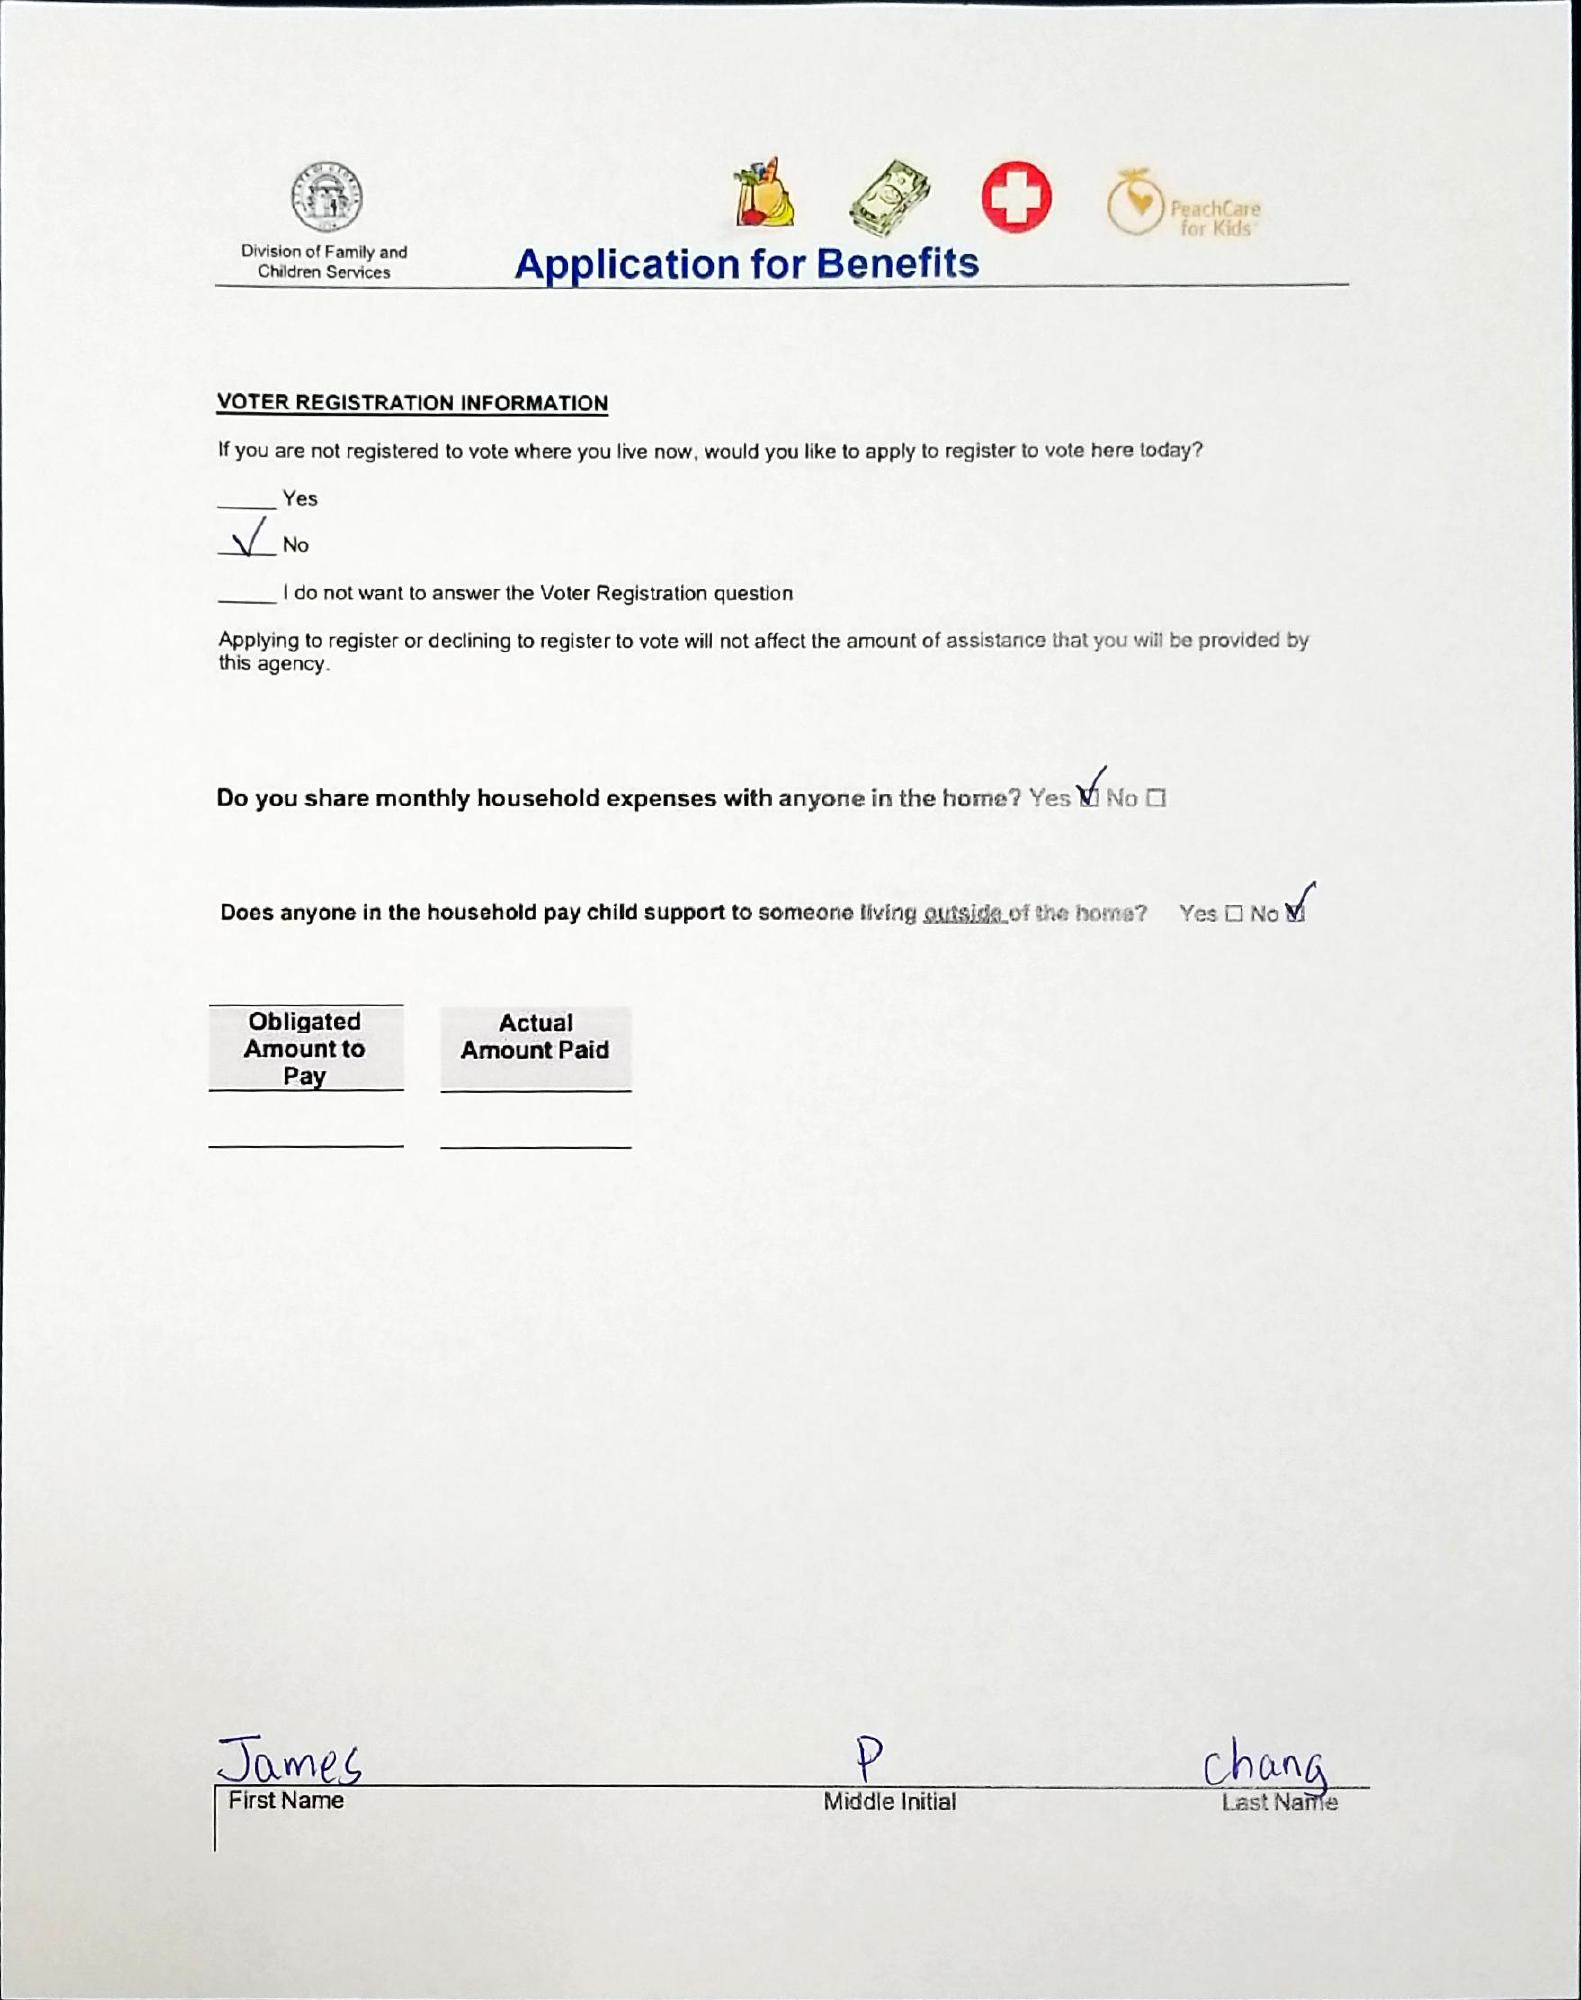 STATE OF GEORGIA
Division of Family and
Children Services
Application for Benefits
PeachCare
for Kids
VOTER REGISTRATION INFORMATION
If you are not registered to vote where you live now, would you like to apply to register to vote here today?
Yes
✓ No
I do not want to answer the Voter Registration question
Applying to register or declining to register to vote will not affect the amount of assistance that you will be provided by
this agency.
Do you share monthly household expenses with anyone in the home? Yes ☑ No ☐
Does anyone in the household pay child support to someone living outside of the home? Yes ☐ No ☑
Obligated
Amount to
Pay
Actual
Amount Paid
James P chang
First Name Middle Initial Last Name